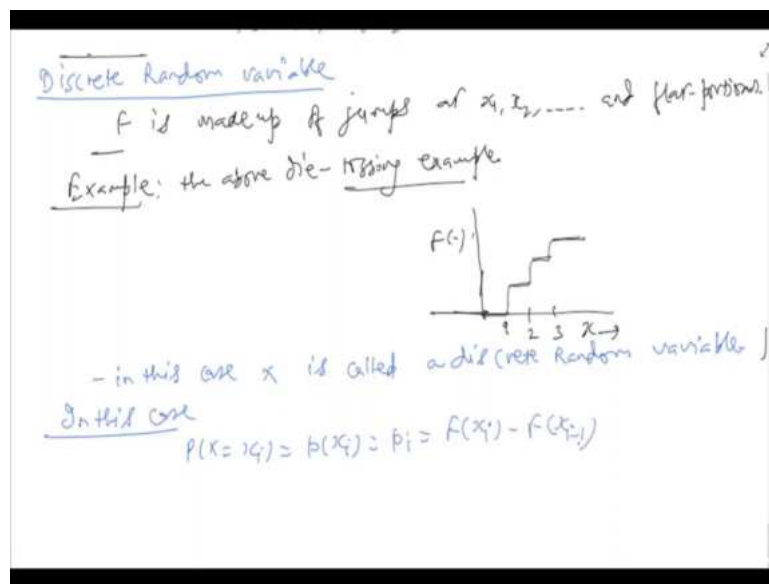 Discrete Random variable
F is made up of jumps at x₁, x₂, ..... and flat-portions.
Example: the above die-tossing example
F(·)
1 2 3 x→
- in this case x is called a discrete Random variable
In this case
P(X = xᵢ) = p(xᵢ) = pᵢ = F(xᵢ) - F(xᵢ₋₁)